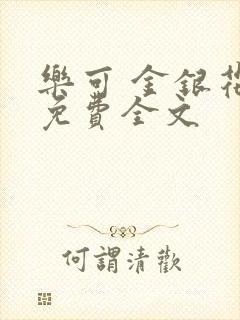 樂可 金銀花
免費全文
何謂清歡